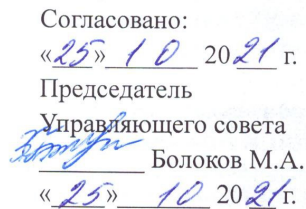 Согласовано:
«25» 10 2021 г.
Председатель
Управляющего совета
Болоков М.А.
«25» 10 2021 г.